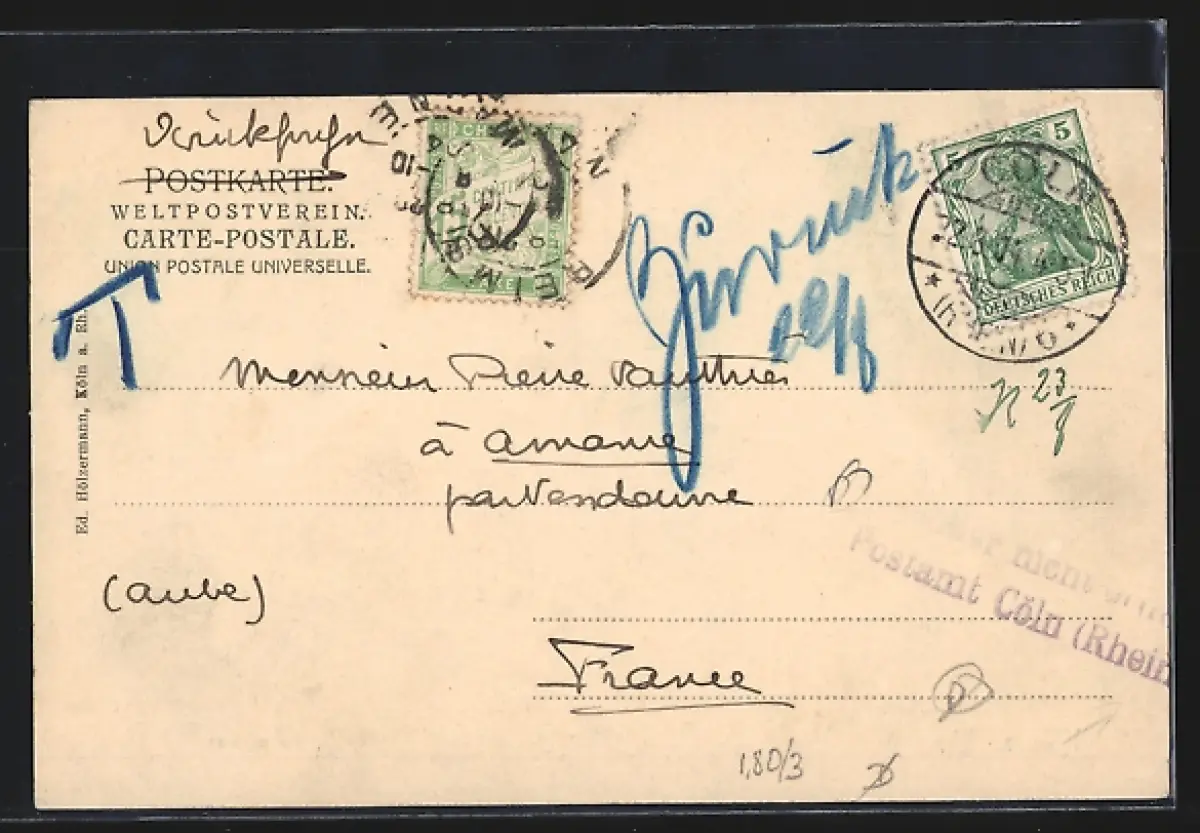 Drucksache
POSTKARTE.
WELTPOSTVEREIN.
CARTE-POSTALE.
UNION POSTALE UNIVERSELLE.
T
Zurück
5 5
CÖLN
DEUTSCHES REICH
(RHEIN)
Monsieur Pierre
à Amance
par Vendeuvre
(Aube)
France
23/8
Ed. Hölzermann, Köln a. Rh.
nicht
Postamt Cöln (Rhein
1,80/3